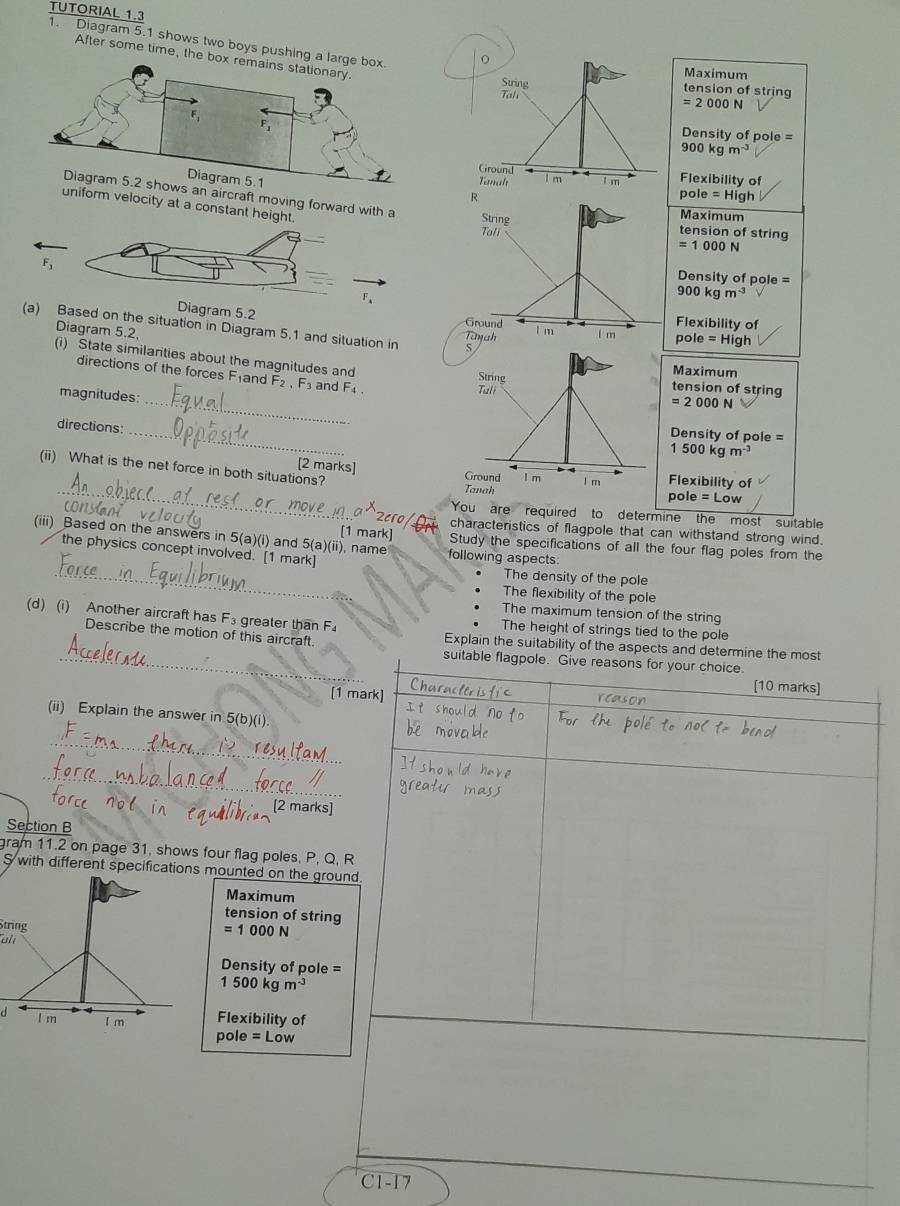 TUTORIAL 1.3
1. Diagram 5.1 shows two boys pushing a large box.
After some time, the box remains stationary.
F₁
F₂
Diagram 5.1
Diagram 5.2 shows an aircraft moving forward with a
uniform velocity at a constant height.
F₃
F₄
Diagram 5.2
(a) Based on the situation in Diagram 5.1 and situation in
Diagram 5.2,
(i) State similarities about the magnitudes and
directions of the forces F₁and F₂ , F₃ and F₄ .
magnitudes: Equal
directions: Opposite
[2 marks]
(ii) What is the net force in both situations?
An object at rest or move in a x zero/
constant velocity
[1 mark]
(iii) Based on the answers in 5(a)(i) and 5(a)(ii), name
the physics concept involved. [1 mark]
Force in Equilibrium
(d) (i) Another aircraft has F₃ greater than F₄
Describe the motion of this aircraft.
Accelerate
[1 mark]
(ii) Explain the answer in 5(b)(i).
F = ma there is resultant
force unbalanced force //
force not in equilibrium
[2 marks]
Section B
gram 11.2 on page 31, shows four flag poles, P, Q, R
S with different specifications mounted on the ground.
String
Tali
d
1 m
1 m
Maximum
tension of string
= 1 000 N
Density of pole =
1 500 kg m⁻³
Flexibility of
pole = Low
Q
String
Tali
Ground
Tanah
1 m
1 m
Maximum
tension of string
= 2 000 N ✓
Density of pole =
900 kg m⁻³ ✓
Flexibility of
pole = High ✓
R
String
Tali
Ground
Tanah
1 m
1 m
Maximum
tension of string
= 1 000 N
Density of pole =
900 kg m⁻³ ✓
Flexibility of
pole = High ✓
S
String
Tali
Ground
Tanah
1 m
1 m
Maximum
tension of string
= 2 000 N ✓
Density of pole =
1 500 kg m⁻³
Flexibility of ✓
pole = Low
You are required to determine the most suitable
characteristics of flagpole that can withstand strong wind.
Study the specifications of all the four flag poles from the
following aspects.
• The density of the pole
• The flexibility of the pole
• The maximum tension of the string
• The height of strings tied to the pole
Explain the suitability of the aspects and determine the most
suitable flagpole. Give reasons for your choice.
[10 marks]
Characteristic
reason
It should no to
be movable
For the pole to not to bend
It should have
greater mass
C1-17